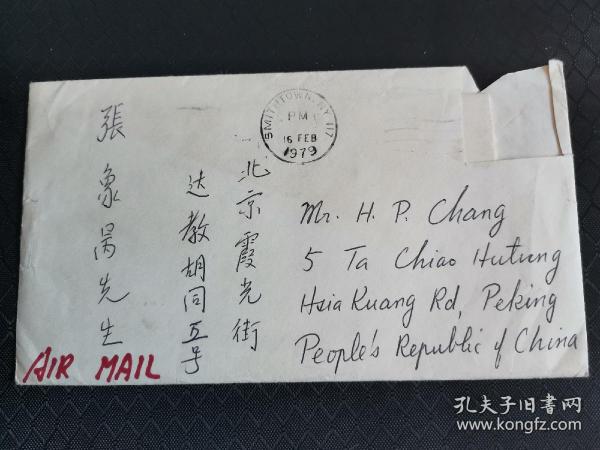 SMITHTOWN, NY 117
PM
16 FEB
1979
北京霞光街
达教胡同五号
張象昺先生
Mr. H. P. Chang
5 Ta Chiao Hutung
Hsia Kuang Rd, Peking
People's Republic of China
AIR MAIL
孔夫子旧書网
www.kongfz.com